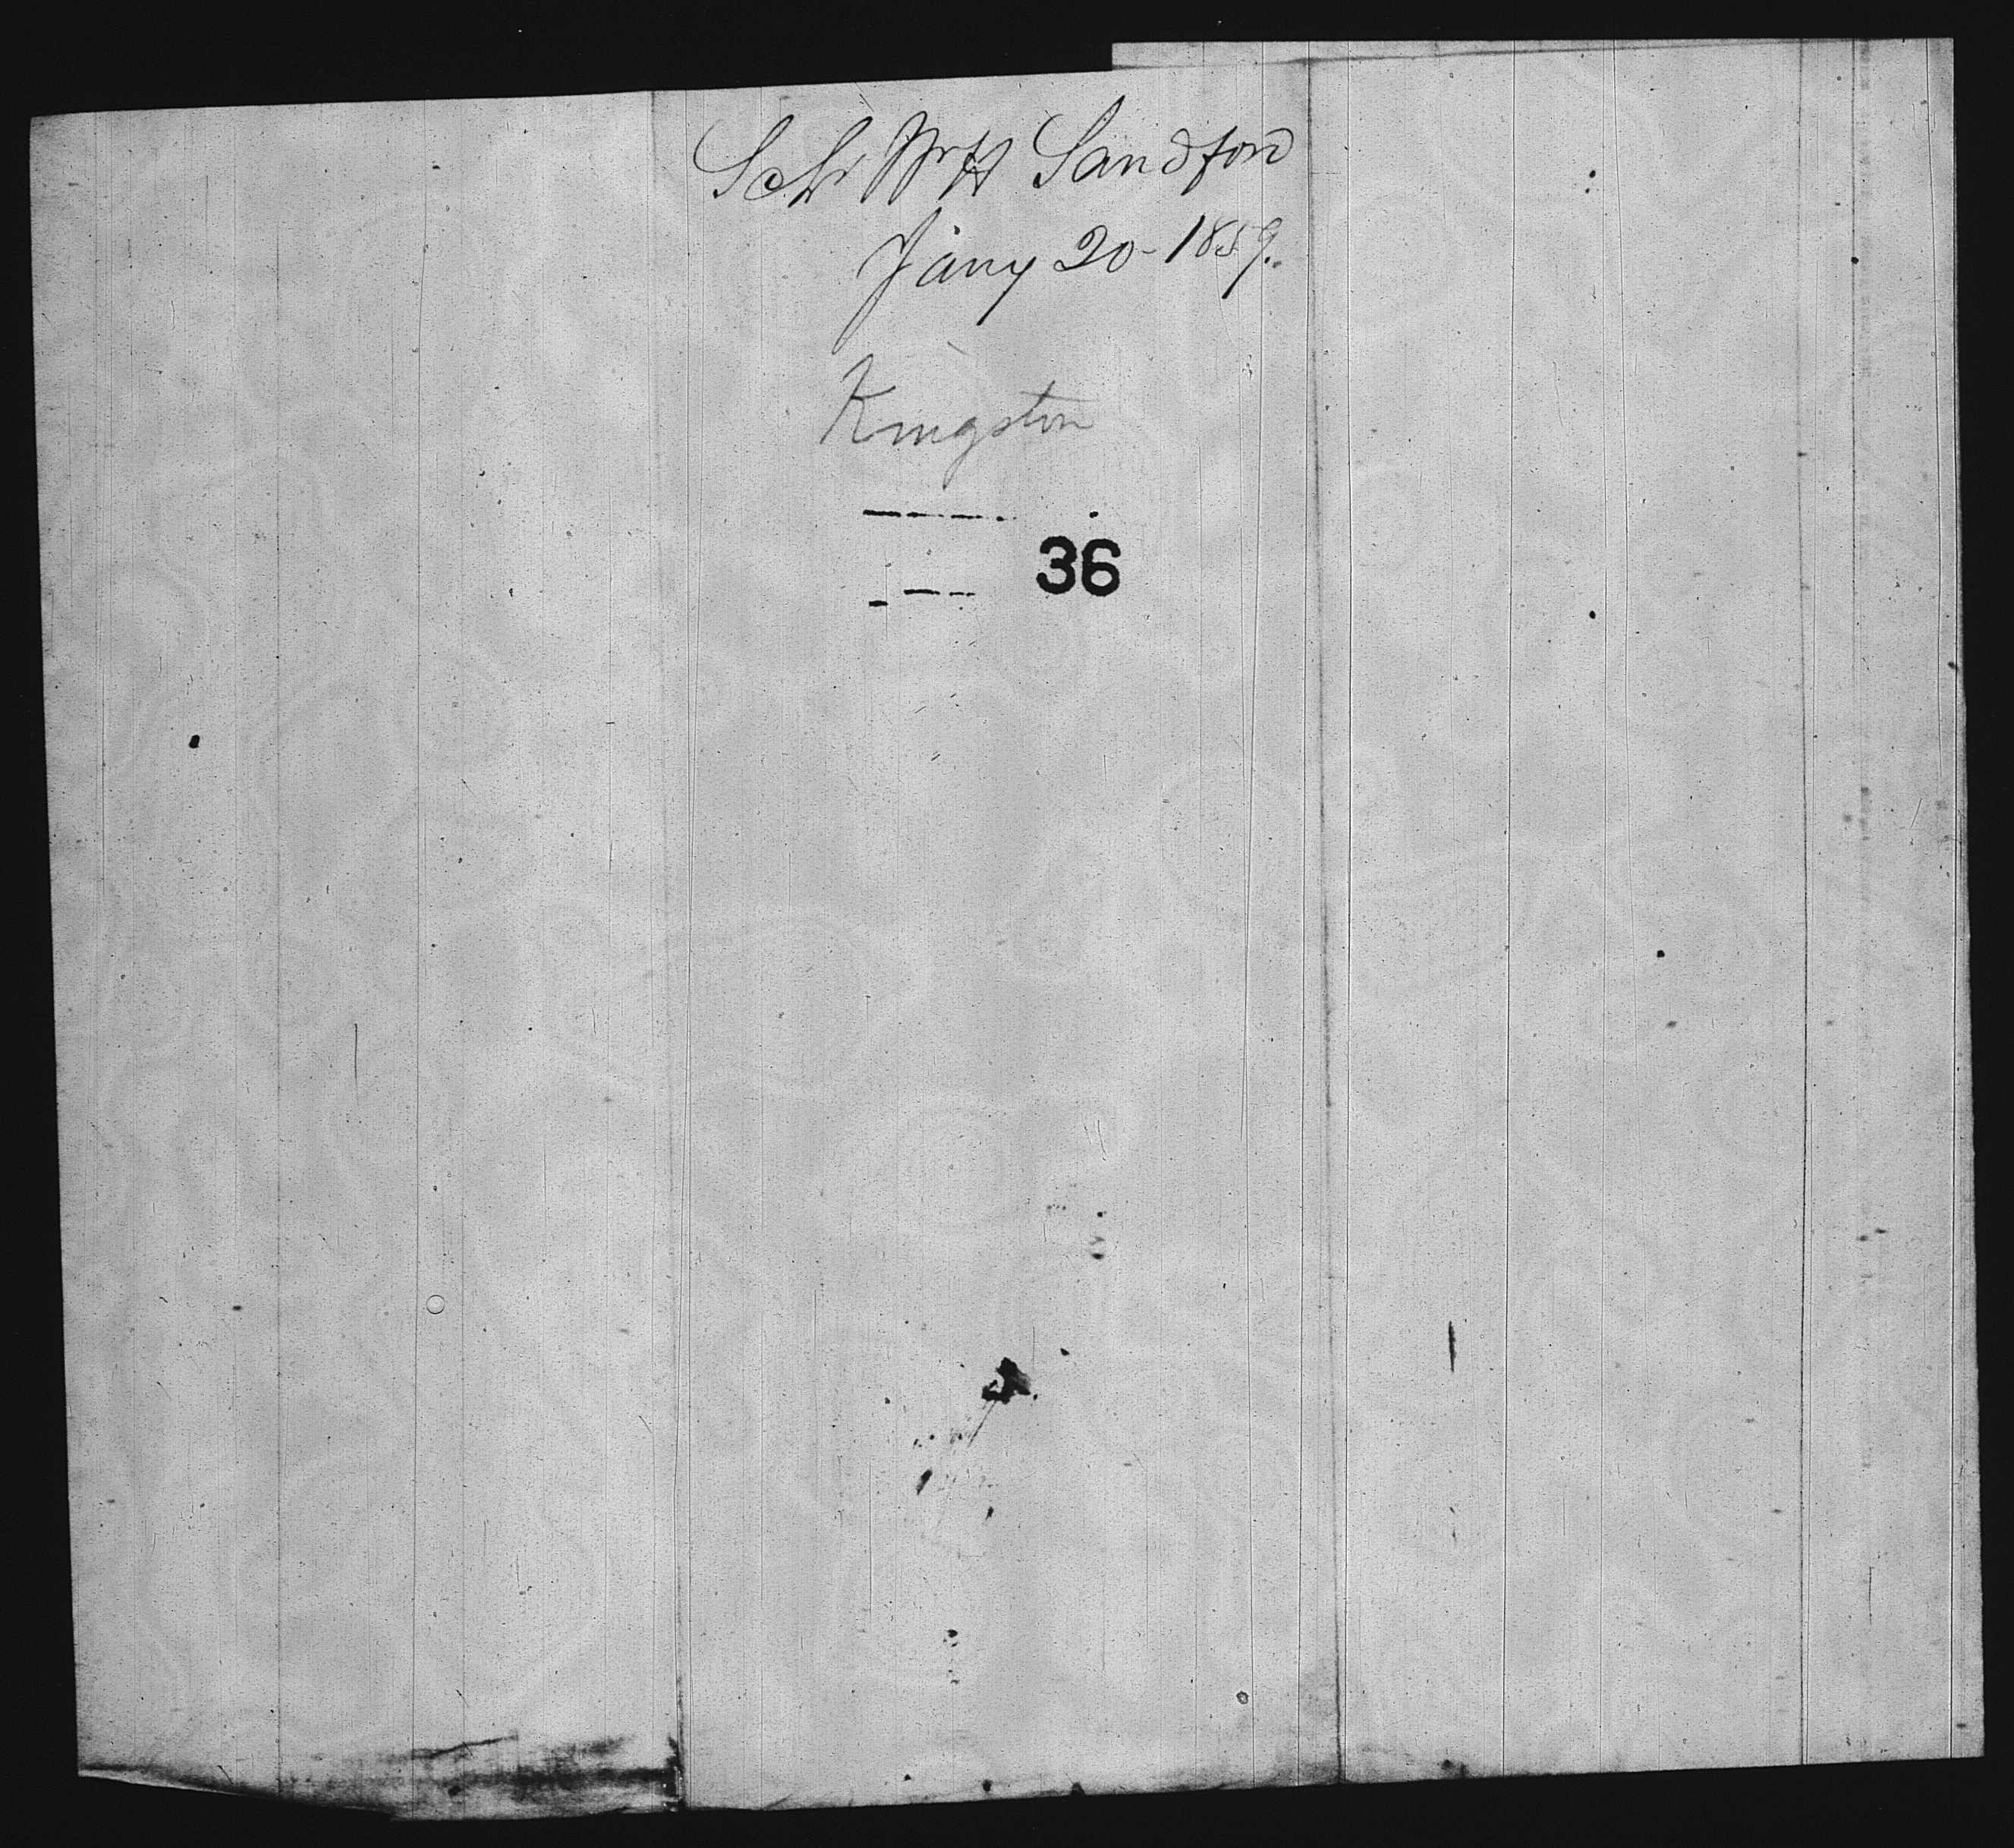 Schr Wm H Sandford
Jany 20 - 1859.
Kingston
36